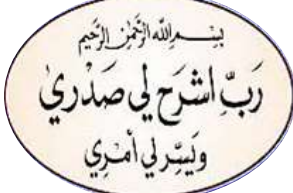 بِسْمِ اللهِ الرَّحْمٰنِ الرَّحِيْمِ
رَبِّ اشْرَحْ لِي صَدْرِي
وَيَسِّرْ لِي أَمْرِي